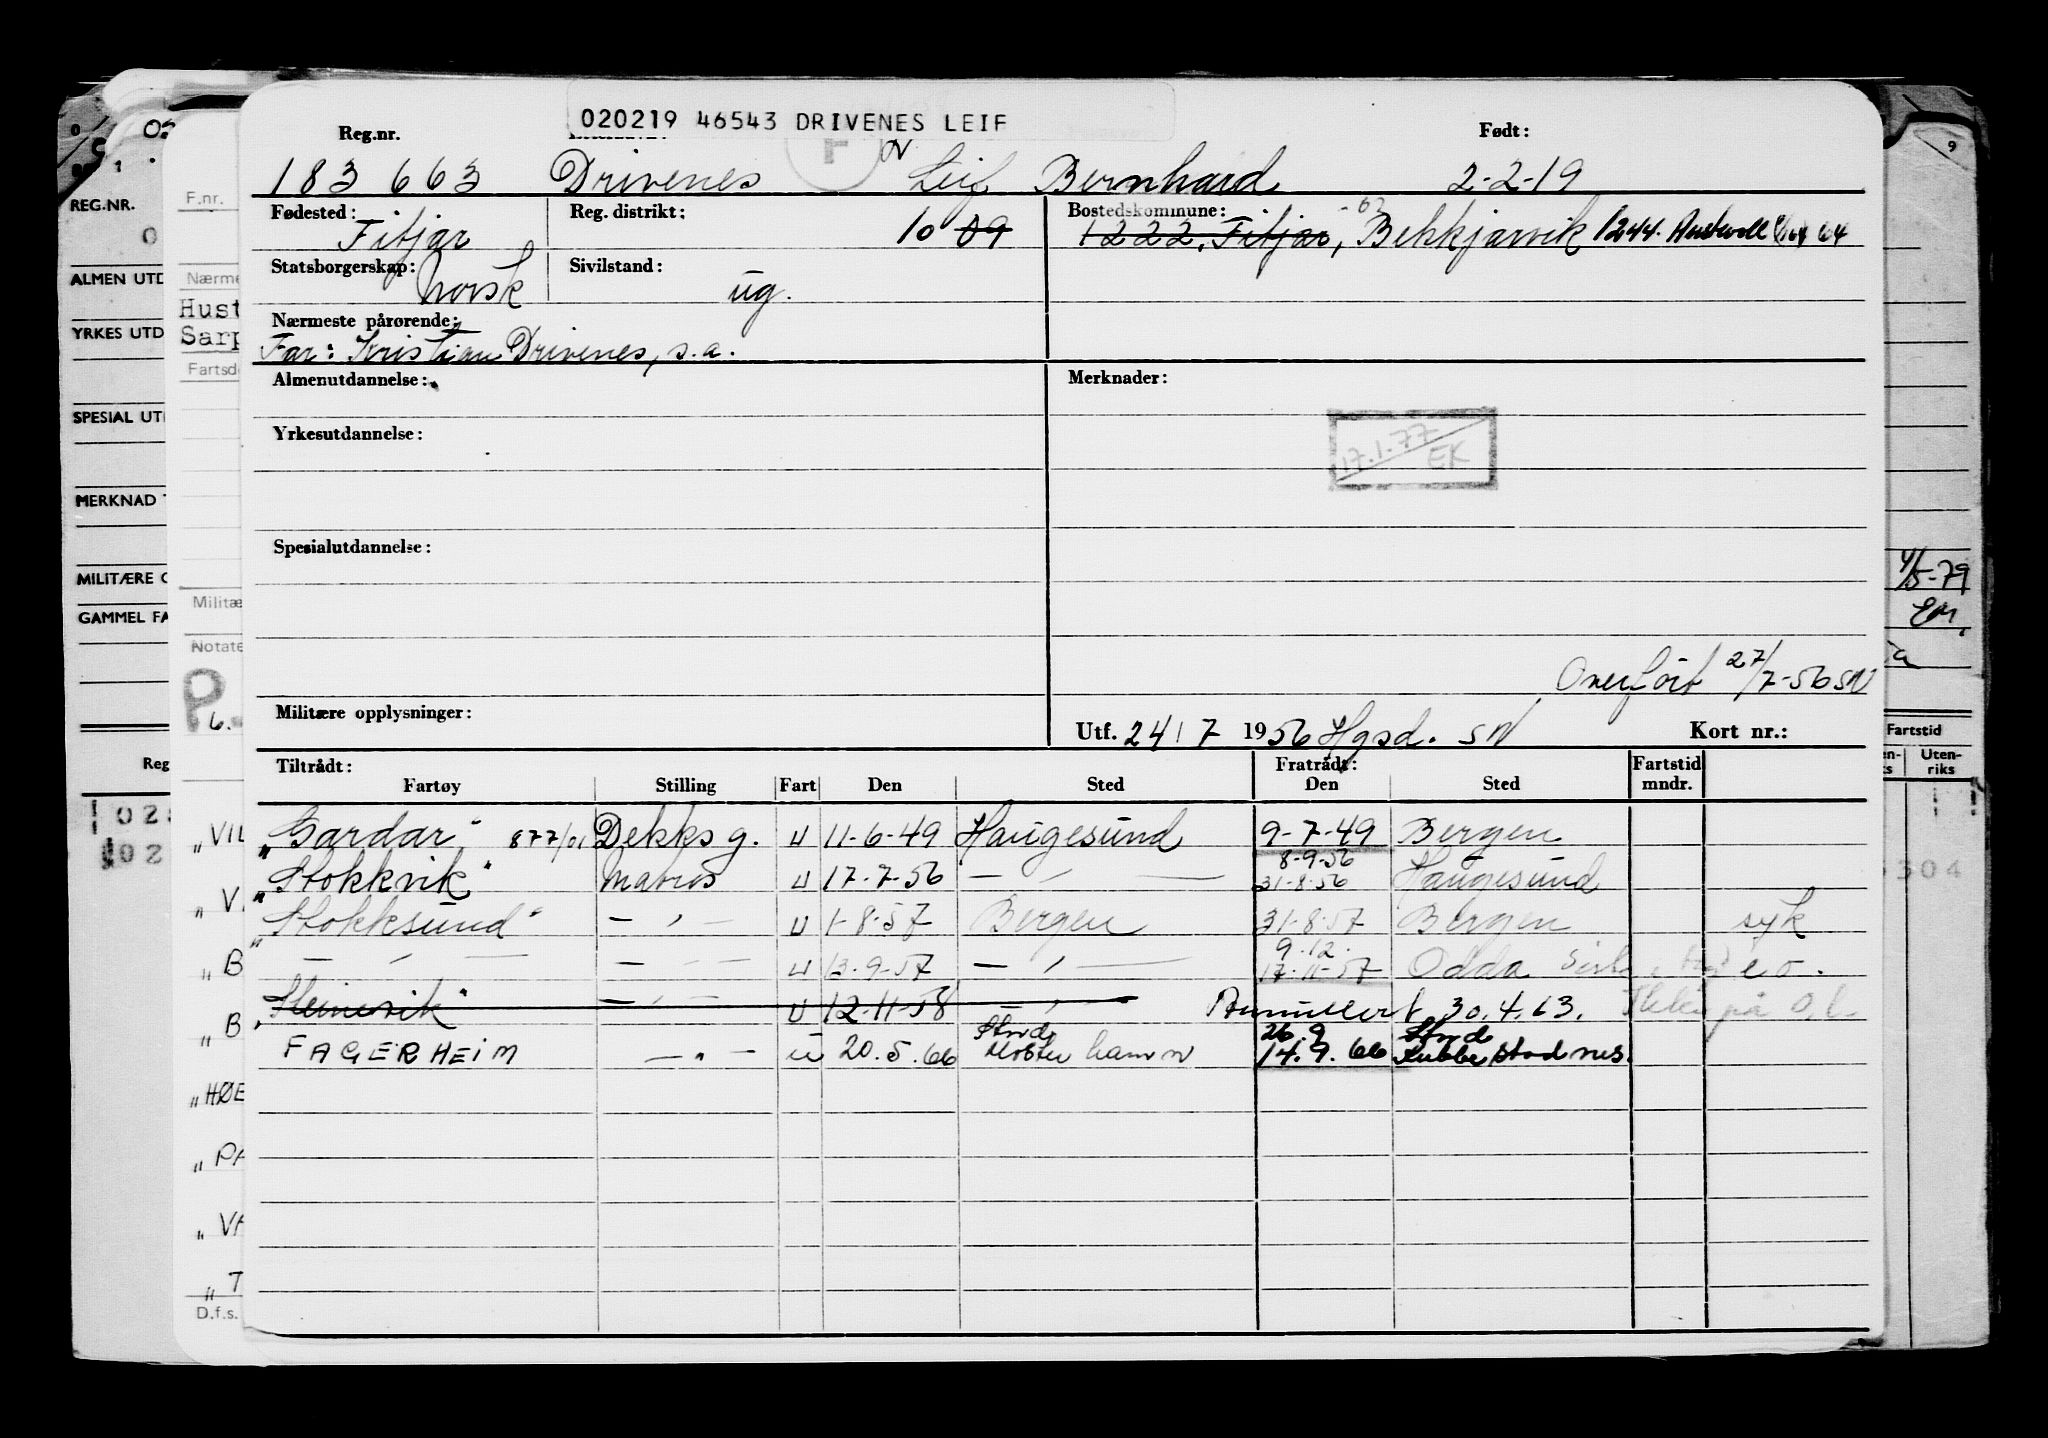 020219 46543 DRIVENES LEIF
Reg.nr. Født:
183 663 Drivenes Leif Bernhard 2-2-19
Fødested: Reg. distrikt: Bostedskommune:
Fitjar 10 09 1222, Fitjar, Bekkjarvik 1244. Austevoll 64
Statsborgerskap: Sivilstand:
norsk ug.
Nærmeste pårørende:
Far: Kristian Drivenes, s.a.
Almenutdannelse: Merknader:
Yrkesutdannelse:
17.1.77 EK
Spesialutdannelse:
Overført 27/7-56 SN
Militære opplysninger:
Utf. 24/7 1956 Hgsd. SN Kort nr.:
Tiltrådt: Fratrådt: Fartstid
Fartøy Stilling Fart Den Sted Den Sted mndr.
"Gardar" 877/01 Dekksg. U 11-6-49 Haugesund 9-7-49 Bergen
8-9-56
"Stokkvik" Matros U 17-7-56 — " — 31-8-56 Haugesund
"Stokksund" — " — U 1-8-57 Bergen 31-8-57 Bergen syk
9.12.
— " — — " — U 13-9-57 — " — 17-11-57 Odda e o.
"Steinsvik" — " — U 12-11-58 — " — Annullert 30.4.63. på
Stord 26.9 Stord
FAGERHEIM — " — U 20.5.66 Mosterhamn 14.9.66 Rubbestadnes.
REG.NR.
ALMEN UTD
YRKES UTD
SPESIAL UT
MERKNAD
MILITÆRE
GAMMEL FA
Reg
02
F.nr.
Nærme
Hust
Sarp
Fartsd
Militæ
Notate
P
6.
"VIL
"V
"B
"B
"HØE
"PA
"VA
"T
D.f.s.
4/5-79
Fartstid
Uten-
riks
304